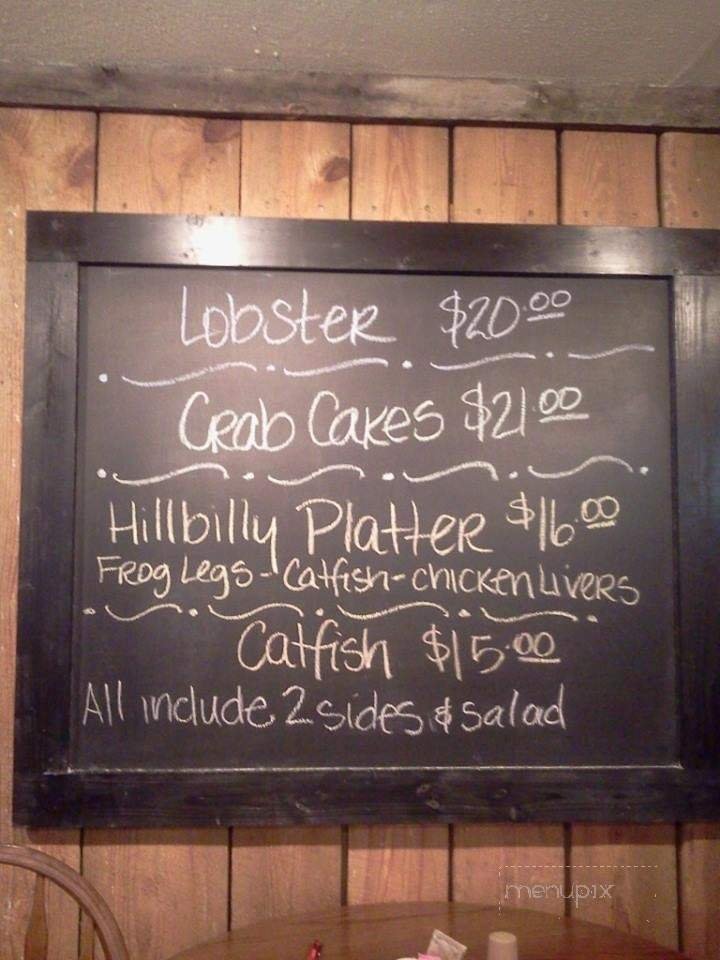 Lobster $20.00
Crab Cakes $21.00
Hillbilly Platter $16.00
Frog Legs - Catfish - chicken Livers
Catfish $15.00
All include 2 sides & salad
menupix